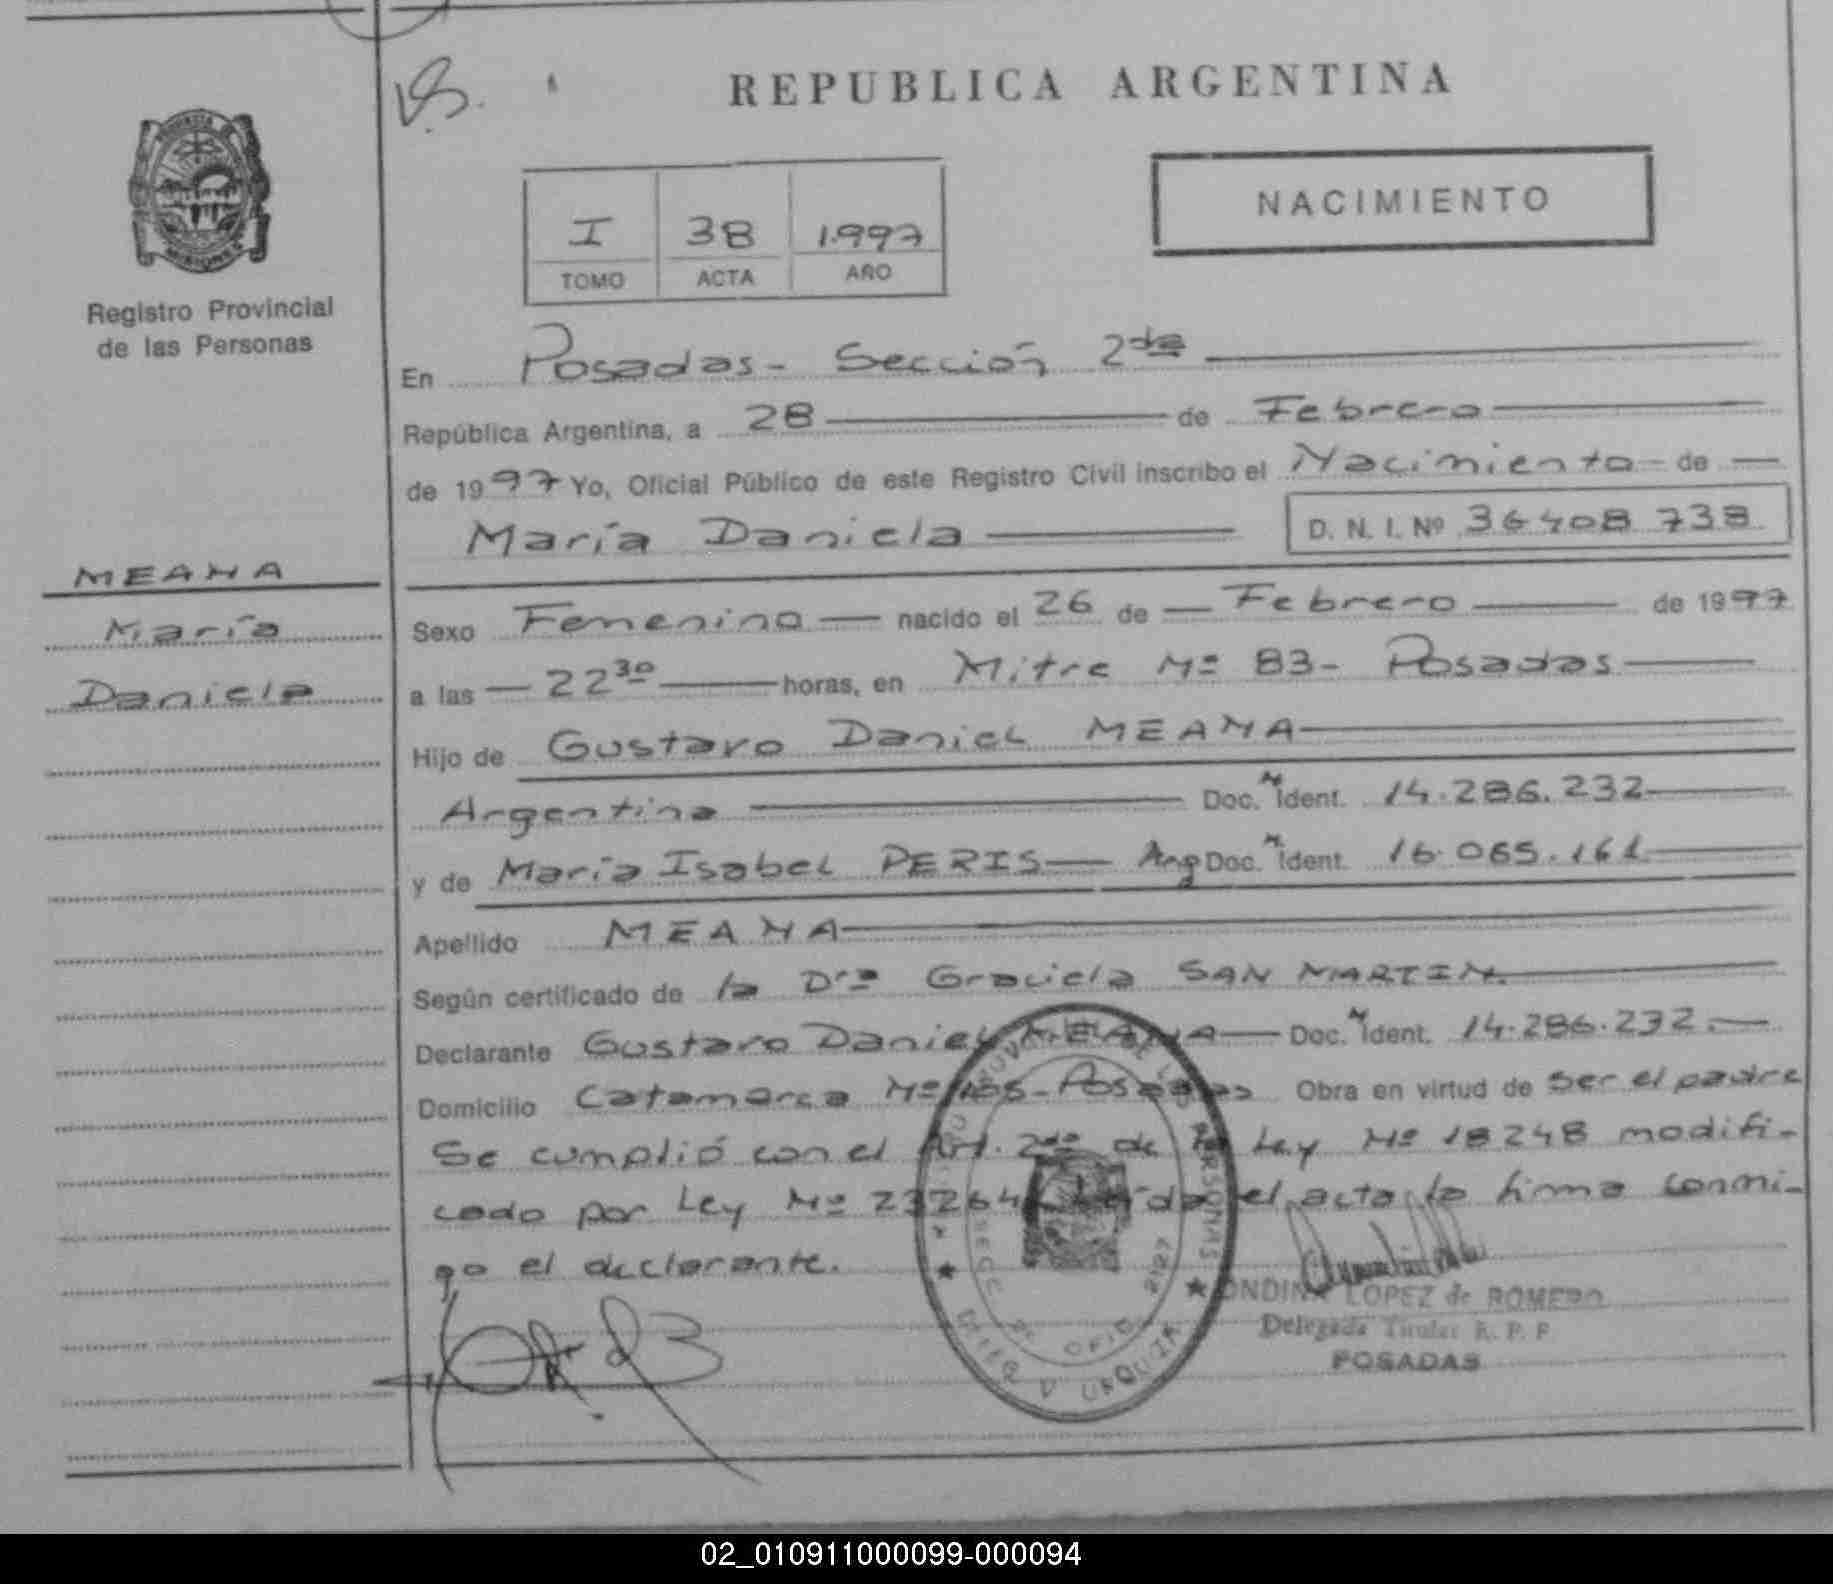 REPUBLICA ARGENTINA
NACIMIENTO
I 38 1.997
TOMO ACTA AÑO
Registro Provincial
de las Personas
En Posadas - Sección 2da
República Argentina, a 28 de Febrero
de 1997 Yo, Oficial Público de este Registro Civil inscribo el Nacimiento de
María Daniela D. N. I. Nº 36408 738
MEANA
María
Daniela
Sexo Femenino nacido el 26 de Febrero de 1997
a las 22 30 horas, en Mitre Nº 83 - Posadas
Hijo de Gustavo Daniel MEANA
Argentina Doc. N Ident. 14.286.232
y de María Isabel PERIS Arg Doc. N Ident. 16.065.161
Apellido MEANA
Según certificado de la Dra Graciela SAN MARTIN.
Declarante Gustavo Daniel MEANA Doc. N Ident. 14.286.232.
Domicilio Catamarca Nº Posadas Obra en virtud de ser el padre
Se cumplió con el Art. 2do de la Ley Nº 18248 modifi-
cado por Ley Nº 23264 Leída el acta la firma conmi-
go el declarante.
ONDINA LOPEZ de ROMERO
Delegada Titular R. P. P.
POSADAS
PERSONAS
SECC 2ª OFIC
URQUIZA
02_010911000099-000094